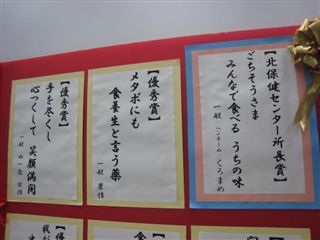 【北保健センター所長賞】
ごちそうさま
みんなで食べる うちの味
一般 ペンネーム くろまめ
【優秀賞】
メタボにも
食養生と言う薬
一般 男性
【優秀賞】
手を尽くし
心つくして 笑顔満開
一般 女性